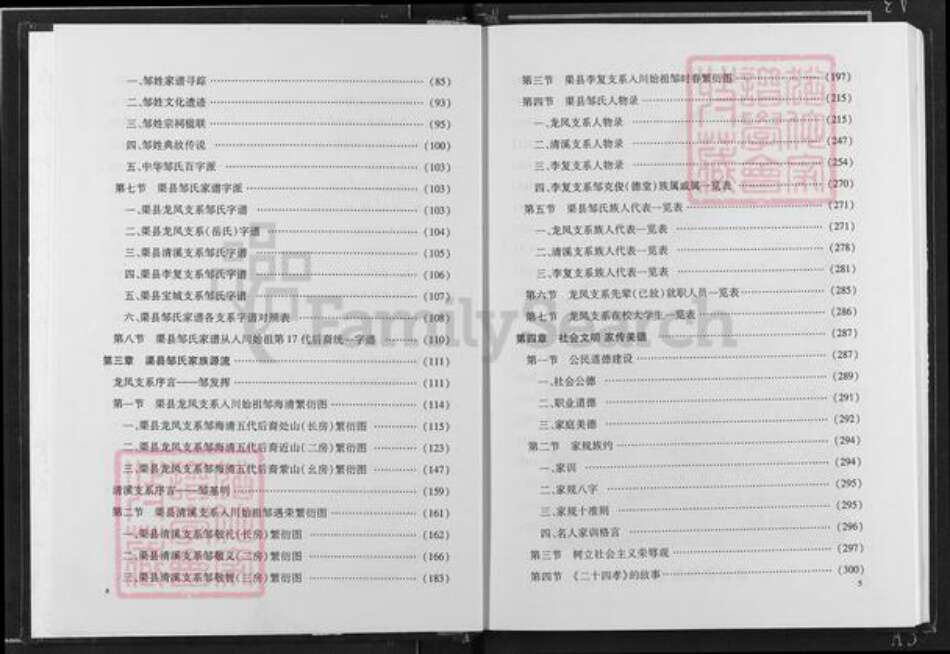 一、邹姓家谱寻踪 (85)
二、邹姓文化遗迹 (93)
三、邹姓宗祠楹联 (95)
四、邹姓典故传说 (100)
五、中华邹氏百字派 (103)
第七节 渠县邹氏家谱字派 (103)
一、渠县龙凤支系邹氏字谱 (103)
二、渠县龙凤支系(岳氏)字谱 (104)
三、渠县清溪支系邹氏字谱 (105)
四、渠县李复支系邹氏字谱 (106)
五、渠县宝城支系邹氏字谱 (107)
六、渠县邹氏家谱各支系字谱对照表 (108)
第八节 渠县邹氏家谱从入川始祖第17代后裔统一字谱 (110)
第三章 渠县邹氏家族源流 (111)
龙凤支系序言——邹发挥 (111)
第一节 渠县龙凤支系入川始祖邹海清繁衍图 (114)
一、渠县龙凤支系邹海清五代后裔处山(长房)繁衍图 (115)
二、渠县龙凤支系邹海清五代后裔近山(二房)繁衍图 (123)
三、渠县龙凤支系邹海清五代后裔蒙山(幺房)繁衍图 (147)
清溪支系序言——邹基明 (159)
第二节 渠县清溪支系入川始祖邹遇荣繁衍图 (161)
一、渠县清溪支系邹敬礼(长房)繁衍图 (162)
二、渠县清溪支系邹敬义(二房)繁衍图 (166)
三、渠县清溪支系邹敬智(三房)繁衍图 (183)
4
第三节 渠县李复支系入川始祖邹时春繁衍图 (197)
第四节 渠县邹氏人物录 (215)
一、龙凤支系人物录 (215)
二、清溪支系人物录 (247)
三、李复支系人物录 (254)
四、李复支系邹克俊(德堂)族属戚属一览表 (270)
第五节 渠县邹氏族人代表一览表 (271)
一、龙凤支系族人代表一览表 (271)
二、清溪支系族人代表一览表 (278)
三、李复支系族人代表一览表 (281)
第六节 龙凤支系先辈(已故)就职人员一览表 (285)
第七节 龙凤支系在校大学生一览表 (286)
第四章 社会文明 家传美德 (287)
第一节 公民道德建设 (287)
一、社会公德 (289)
二、职业道德 (291)
三、家庭美德 (292)
第二节 家规族约 (294)
一、家训 (294)
二、家规八字 (295)
三、家规十准则 (295)
四、名人家训格言 (296)
第三节 树立社会主义荣辱观 (297)
第四节 《二十四孝》的故事 (300)
5
FamilySearch